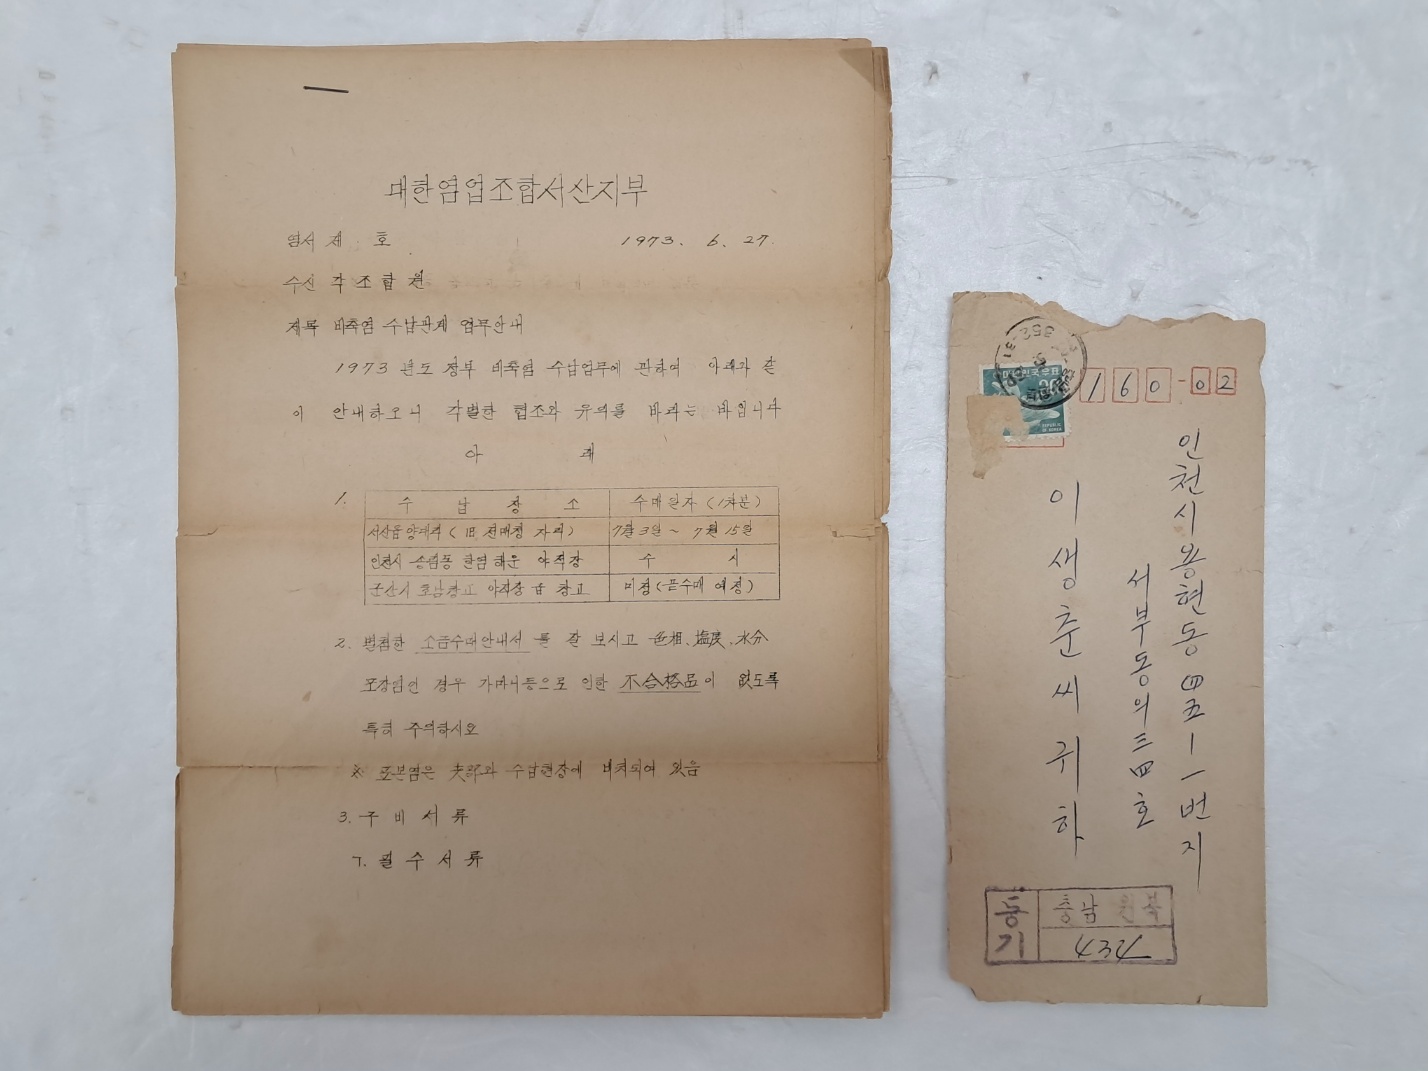 대한염업조합서산지부
염서 제 호 1973. 6. 27.
수신 각 조합원
제목 비축염 수납관계 업무안내
1973 년도 정부 비축염 수납업무에 관하여 아래와 같
이 안내하오니 각별한 협조와 유의를 바라는 바입니다
아 래
1. 수 납 장 소 수매일자 (1차분)
서산읍 양대리 (旧 전매청 자리) 7월 3일 ~ 7월 15일
인천시 송림동 한염해운 야적장 수 시
군산시 호남창고 야적장 및 창고 미정 (포수매 예정)
2. 별첨한 소금수매안내서 를 잘 보시고 色相、塩度、水分
포장임인 경우 가마니등으로 인한 不合格品이 없도록
특히 주의하시오
※ 표본염은 支部와 수납현장에 비치되여 있음
3. 구 비 서 류
ㄱ. 필 수 서 류
대한민국우표
REPUBLIC OF KOREA
352-31
160-02
인천시용현동四五一一번지
서부동의三四호
이생춘씨귀하
등기
충남 원북
434